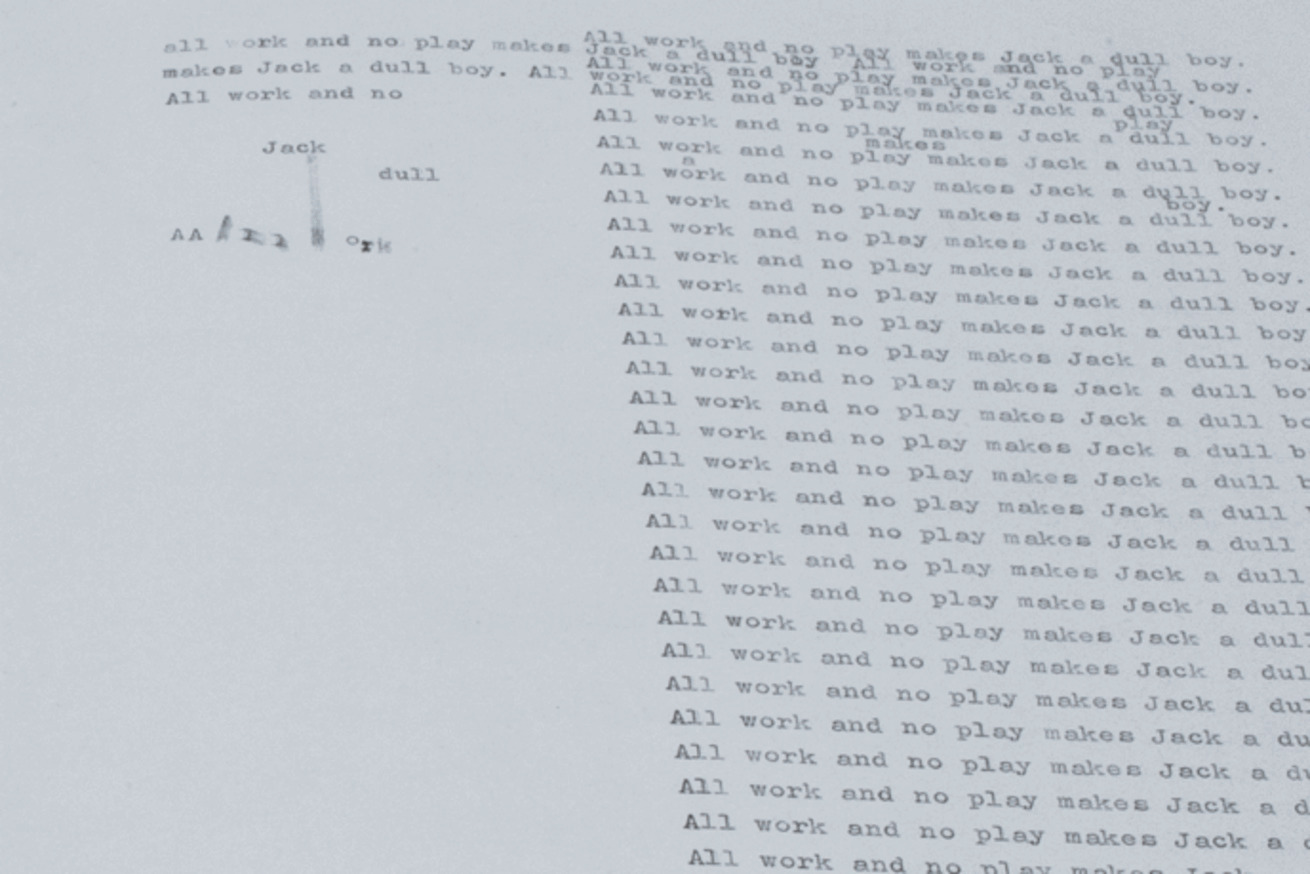 all ork and no play makes
makes Jack a dull boy. All
All work and no
Jack
dull
AA
ork
All work and no play makes Jack a dull boy.
Jack a dull boy All work and no play
All work and no play makes Jack a dull boy.
work and no play makes Jack a dull boy.
All work and no play makes Jack a dull boy.
play
All work and no play makes Jack a dull boy.
makes
All work and no play makes Jack a dull boy.
a
All work and no play makes Jack a dull boy.
boy.
All work and no play makes Jack a dull boy.
All work and no play makes Jack a dull boy.
All work and no play makes Jack a dull boy.
All work and no play makes Jack a dull boy.
All work and no play makes Jack a dull boy
All work and no play makes Jack a dull boy
All work and no play makes Jack a dull bo
All work and no play makes Jack a dull bo
All work and no play makes Jack a dull b
All work and no play makes Jack a dull b
All work and no play makes Jack a dull
All work and no play makes Jack a dull
All work and no play makes Jack a dull
All work and no play makes Jack a dull
All work and no play makes Jack a dul
All work and no play makes Jack a dul
All work and no play makes Jack a du
All work and no play makes Jack a du
All work and no play makes Jack a d
All work and no play makes Jack a d
All work and no play makes Jack a
All work and no play makes